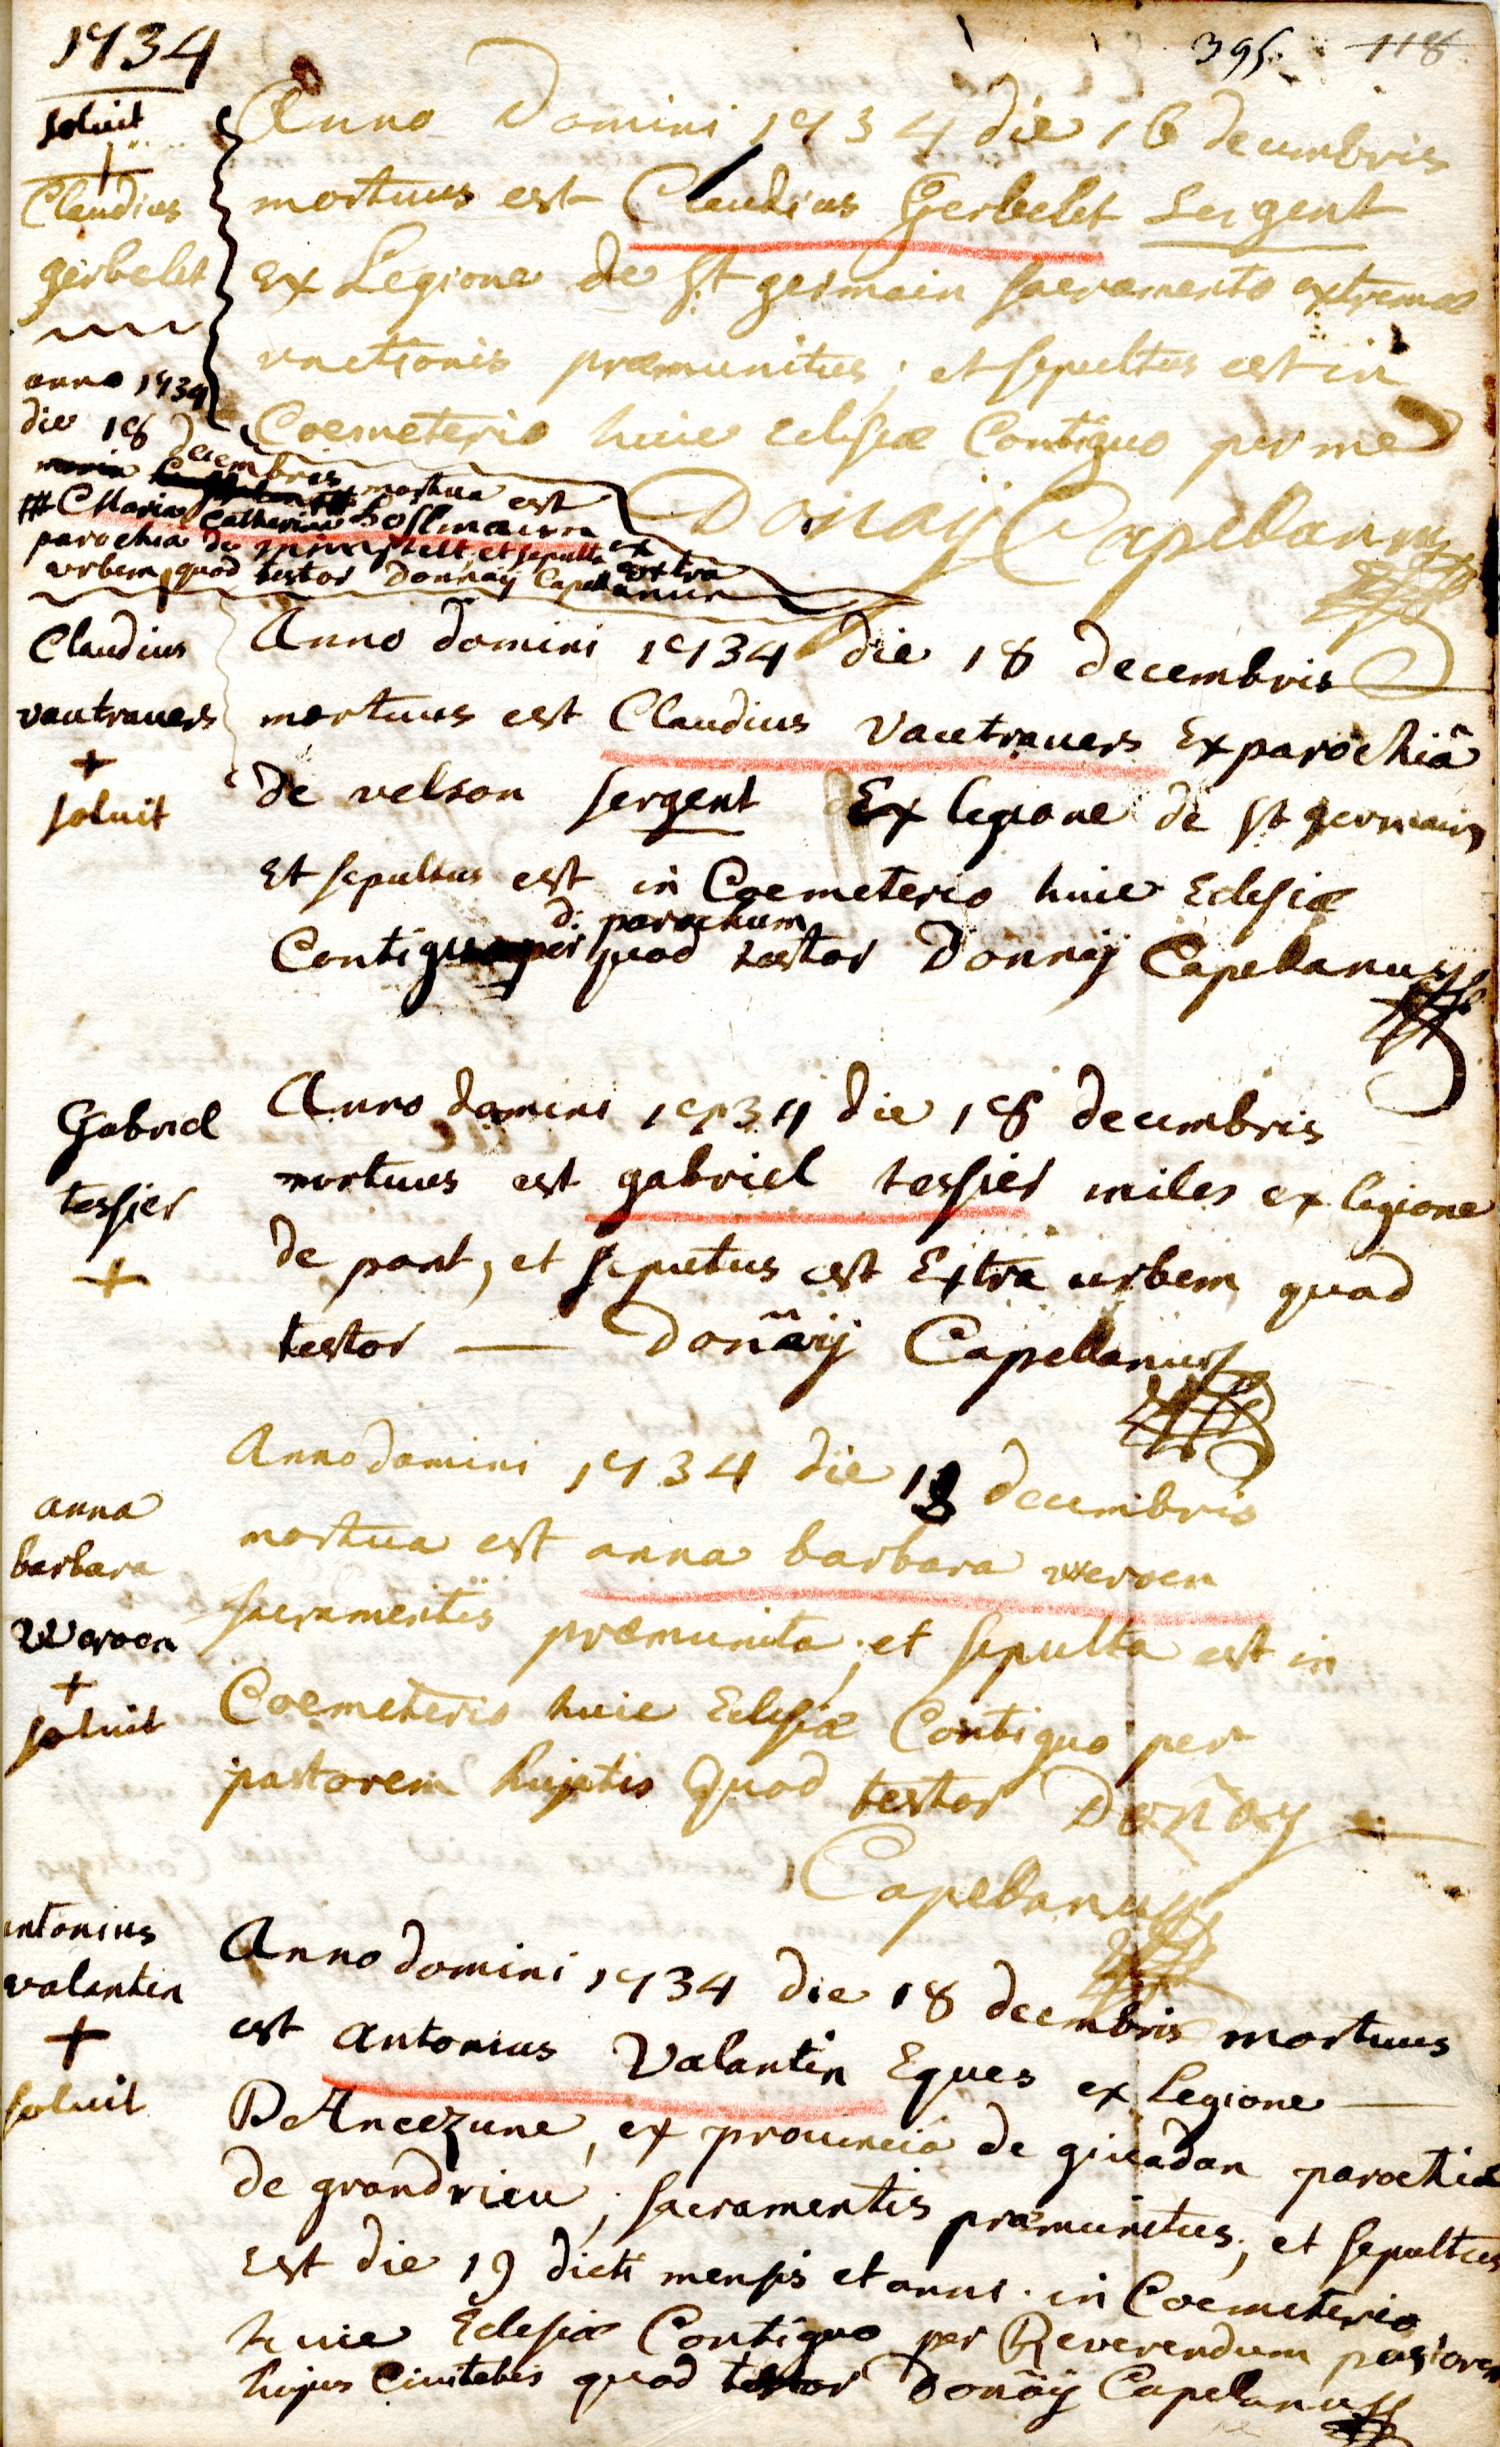 1734
395. 118
soluit
+
Claudius
gerbelet
Anno Domini 1734 die 16 decembris
mortuus est Claudius Gerbelet Sergent
ex Legione de St germain sacramento extremæ
unctionis præmunitus, et sepultus est in
Coemeterio huic eclesiæ Contiguo per me
Donaÿ Capellanum
anno 1734
die 18 decembris mortua est
Maria Catherina
parochia de et sepulta extra
urbem, quod testor Donnaÿ Capellanus
Claudius
vautrauers
+
soluit
Anno domini 1734 die 18 decembris
mortuus est Claudius Vautrauers Ex parochiâ
de velson sergent Ex legione de St germain
Et sepultus est in Coemeterio huic Eclesiæ
d. parochum
Contiguo per quod testor Donnaÿ Capellanus
Gabriel
tessier
+
Anno domini 1734 die 18 decembris
mortuus est gabriel tessier miles ex legione
de pont, et sepultus est Extra urbem quod
testor — Doñaÿ Capellanus
anna
barbara
Weroen
+
soluit
Anno domini 1734 die 18 decembris
mortua est anna barbara weroen
sacramentis præmunita, et sepulta est in
Coemeterio huic Eclesiæ Contiguo per
pastorem hujatis Quod testor Doñay
Capellanus
antonius
valantin
+
soluit
Anno domini 1734 die 18 decembris mortuus
est antonius Valantin Eques ex Legione —
De Ancezune, ex prouincia de giuadan parochia
de grandrieu, sacramentis præmunitus, et sepultus
Est die 19 dicti mensis et anni. in Coemeterio
huic Eclesiæ Contiguo per Reverendum pastorem
hujus Ciuitatis quod testor Donaÿ Capelanus